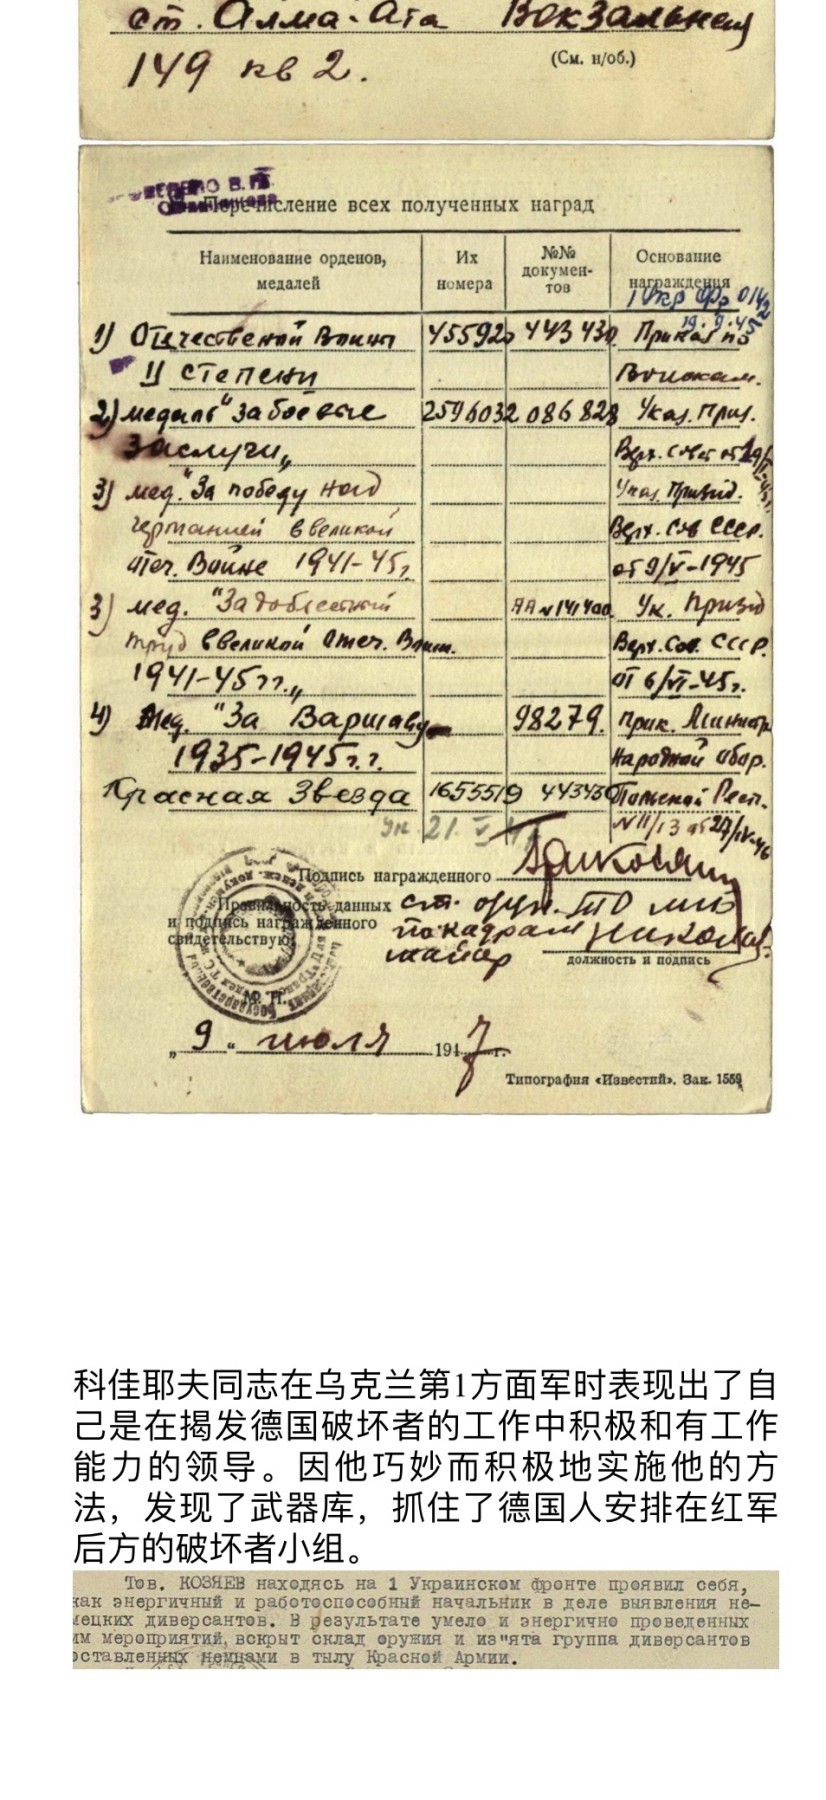 ст. Алма-Ата Вокзальная
149 кв 2.
(См. н/об.)
Перечисление всех полученных наград
Наименование орденов, медалей
Их номера
№№ документов
Основание награждения
1 Укр Фр 0142
19.9.45
1) Отечественой Воины 455920 443430 Приказ по
II степени Войскам.
2) медаль "За боевые 2596032 086828 Указ. През.
Заслуги„ Верх. Совет от
3) мед. "За победу над Указ Презид.
Германией в великой Верх. Сов СССР.
Отеч. Войне 1941-45г, от 9/V-1945
3) мед. "За доблестный АА №141400 Ук. Презид
труд в великой Отеч. Воин. Верх. Сов. СССР.
1941-45гг.„ от 6/VI-45г.
4) Мед. "За Варшаву 98279. Прик. Министр
1935-1945г.г. Народной Обор.
Красная Звезда 1655519 443430 Польской Респ.
ук. 21. V №11/13 от 27/IV-46
Подпись награжденного
Правильность данных ст. опун. ТО МГБ
и подпись награжденного по кадрам
свидетельствую: майор
должность и подпись
М. П.
„ 9 “ июля 1947 г.
Типография «Известий». Зак. 1559
科佳耶夫同志在乌克兰第1方面军时表现出了自
己是在揭发德国破坏者的工作中积极和有工作
能力的领导。因他巧妙而积极地实施他的方
法，发现了武器库，抓住了德国人安排在红军
后方的破坏者小组。
Тов. КОЗЯЕВ находясь на 1 Украинском фронте проявил себя,
как энергичный и работоспособный начальник в деле выявления не-
мецких диверсантов. В результате умело и энергично проведенных
им мероприятий, вскрыт склад оружия и из"ята группа диверсантов
оставленных немцами в тылу Красной Армии.